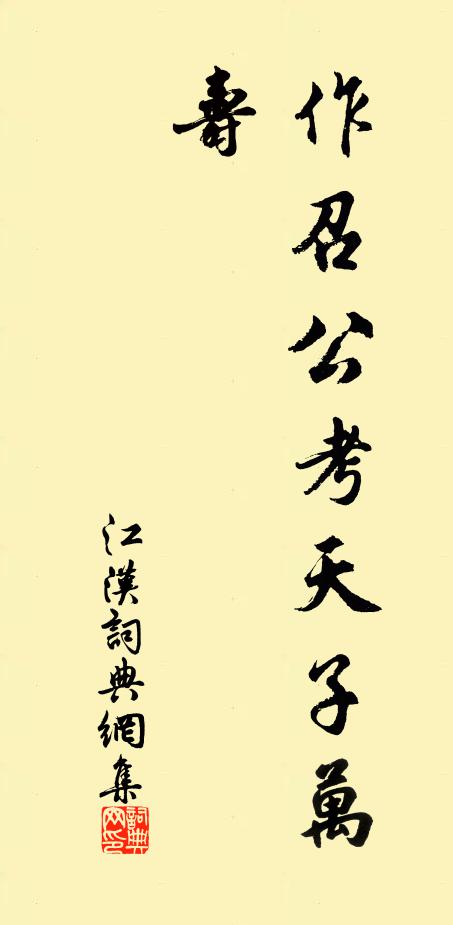 作召公考天子萬
壽
江漢詞典網集
詞典
网印